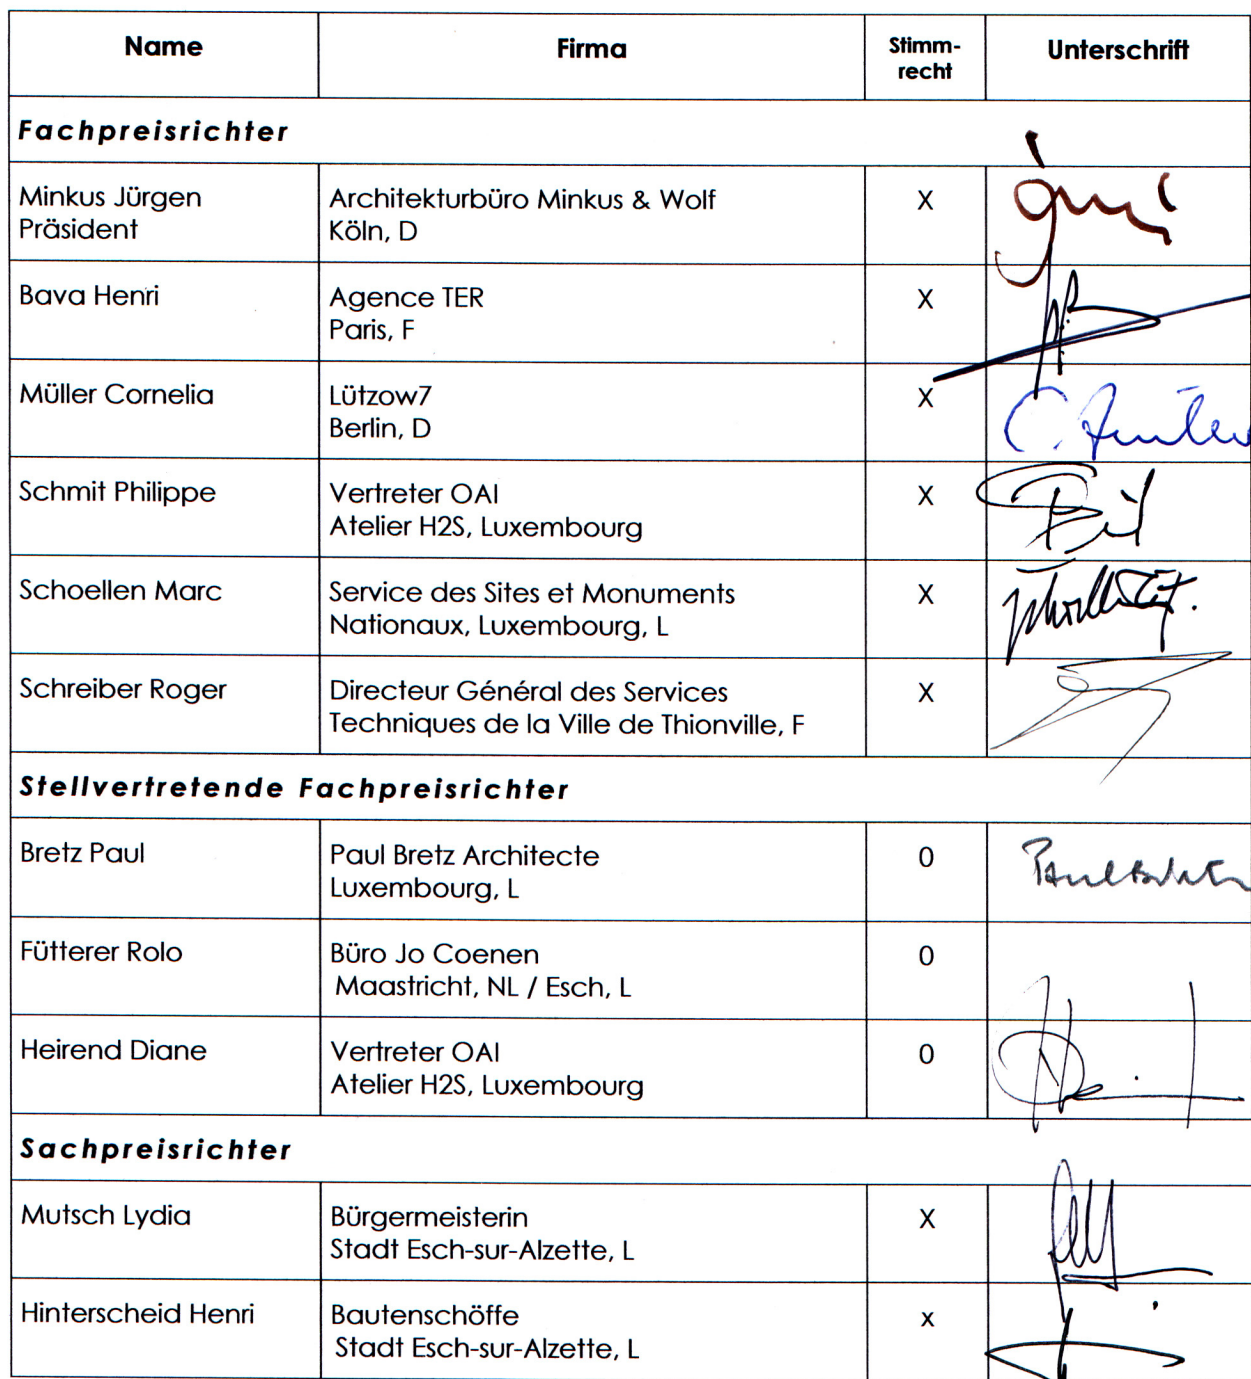 Name Firma Stimm-
recht Unterschrift
Fachpreisrichter
Minkus Jürgen Architekturbüro Minkus & Wolf X
Präsident Köln, D
Bava Henri Agence TER X
Paris, F
Müller Cornelia Lützow7 X
Berlin, D
Schmit Philippe Vertreter OAI X
Atelier H2S, Luxembourg
Schoellen Marc Service des Sites et Monuments X
Nationaux, Luxembourg, L
Schreiber Roger Directeur Général des Services X
Techniques de la Ville de Thionville, F
Stellvertretende Fachpreisrichter
Bretz Paul Paul Bretz Architecte 0
Luxembourg, L
Fütterer Rolo Büro Jo Coenen 0
Maastricht, NL / Esch, L
Heirend Diane Vertreter OAI 0
Atelier H2S, Luxembourg
Sachpreisrichter
Mutsch Lydia Bürgermeisterin X
Stadt Esch-sur-Alzette, L
Hinterscheid Henri Bautenschöffe x
Stadt Esch-sur-Alzette, L